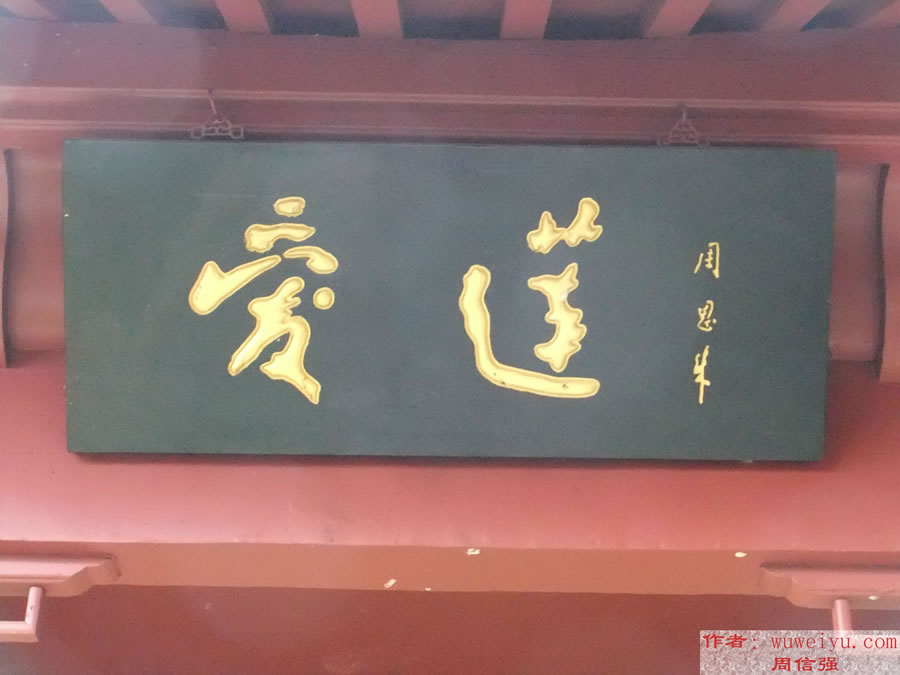 爱莲
周恩来
作者：wuweiyu.com
周信强